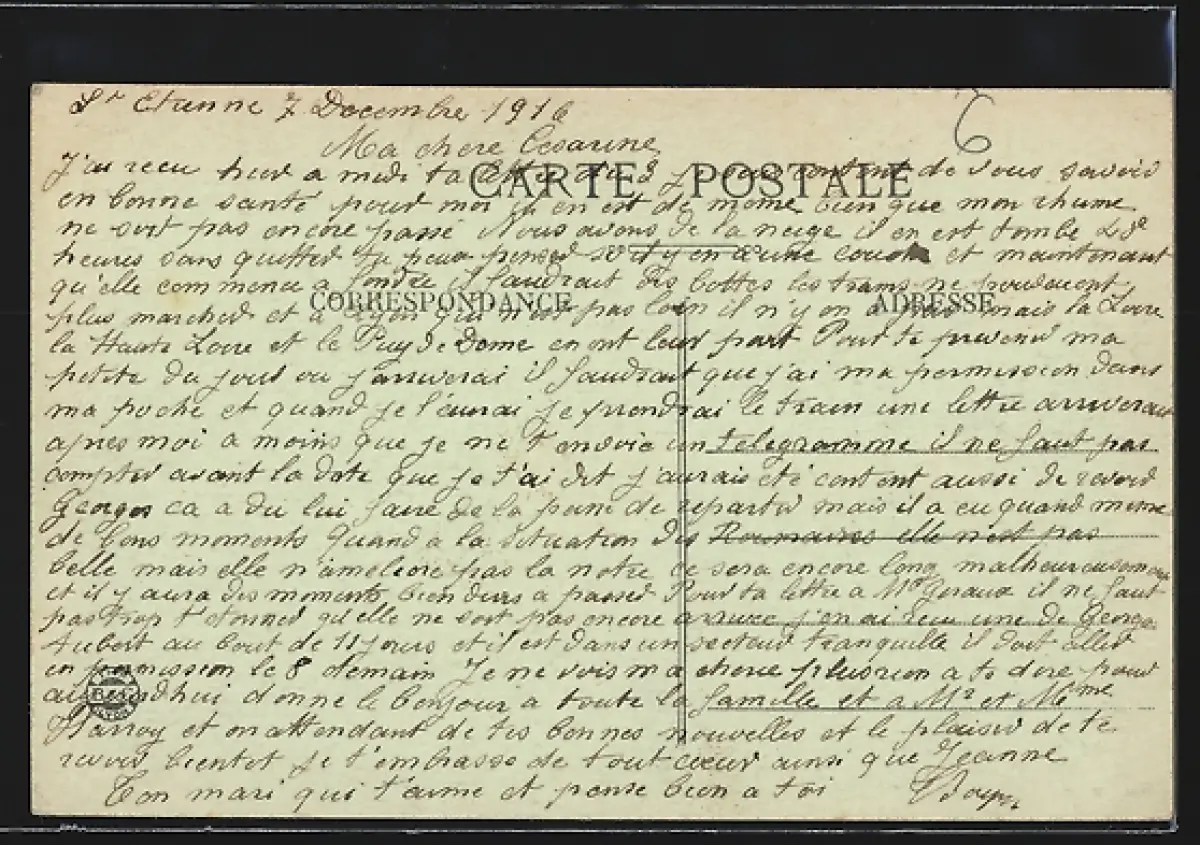 St Etienne 7 Decembre 1916
6
Ma chere Cesarine
CARTE POSTALE
J'ai recu hier a midi ta lettre du 3 je suis content de vous savoir
en bonne santé pour moi il en est de même bien que mon rhume
ne soit pas encore passé Nous avons de la neige il en est tombé
heures sans quitter tu peux penser s'il y en a une couche et maintenant
qu'elle commence a fondre il faudrait des bottes les trams ne pouvaient
CORRESPONDANCE
ADRESSE
plus marcher et a Lyon qui n'est pas loin il n'y en a pas mais la Loire
la Haute Loire et le Puy de Dome en ont leur part Pour te prevenir ma
petite du jour ou j'arriverai il faudrait que j'ai ma permission dans
ma poche et quand je l'aurai je prendrai le train une lettre arriverait
apres moi a moins que je ne t'envoie un telegramme il ne faut pas
compter avant la date que je t'ai dit j'aurais été content aussi de revoir
Georges ca a du lui faire de la peine de repartir mais il a eu quand meme
de bons moments Quand a la situation des Roumains elle n'est pas
belle mais elle n'ameliore pas la notre ce sera encore long malheureusement
et il y aura des moments bien durs a passer Pour ta lettre a Mr Geraux il ne faut
pas trop t'etonner qu'elle ne soit pas encore arrivee j'en ai recu une de Georges
Aubert au bout de 11 jours et il est dans un secteur tranquille il doit aller
en permission le 8 demain Je ne vois ma cherie plus rien a te dire pour
aujourdhui donne le bonjour a toute la famille et a Mr et Mme
et en attendant de tes bonnes nouvelles et le plaisir de te
revoir bientot je t'embrasse de tout coeur ainsi que Jeanne
Ton mari qui t'aime et pense bien a toi